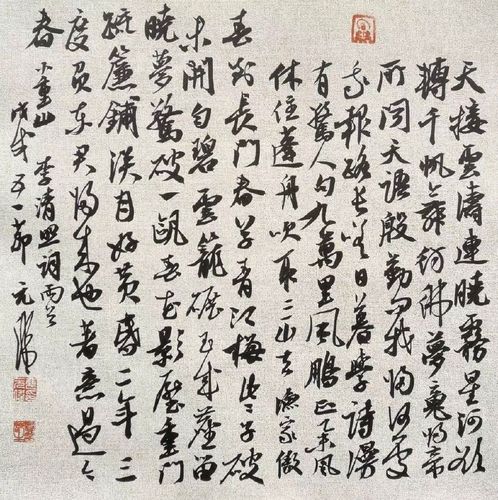 天接雲濤連曉霧星河欲
轉千帆舞彷彿夢魂歸帝
所聞天語殷勤問我歸何處
我報路長嗟日暮學詩謾
有驚人句九萬里風鵬正舉風
休住蓬舟吹取三山去 漁家傲
春到長門春草青江梅些子破
未開勻碧雲籠碾玉成塵留
曉夢驚破一甌春花影壓重門
疏簾鋪淡月好黃昏二年三
度負東君歸來也著意過今
春 小重山 李清照詞兩首
戊戌五一節 元